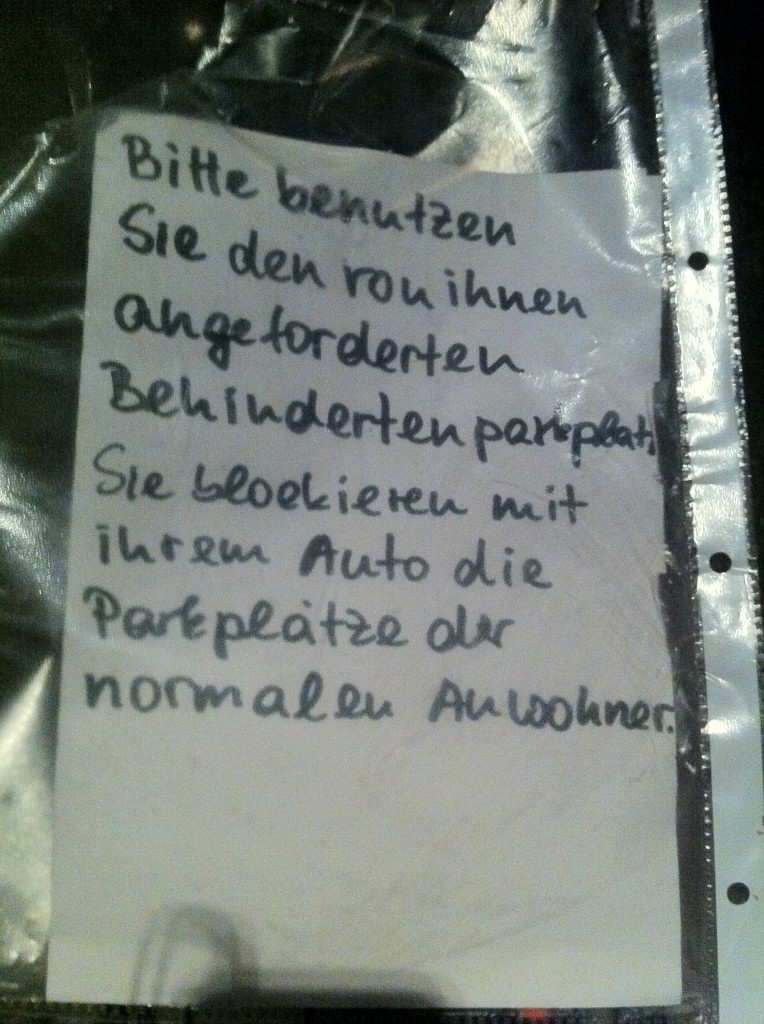 Bitte benutzen
Sie den von ihnen
angeforderten
Behindertenparkplatz
Sie blockieren mit
ihrem Auto die
Parkplätze der
normalen Anwohner.